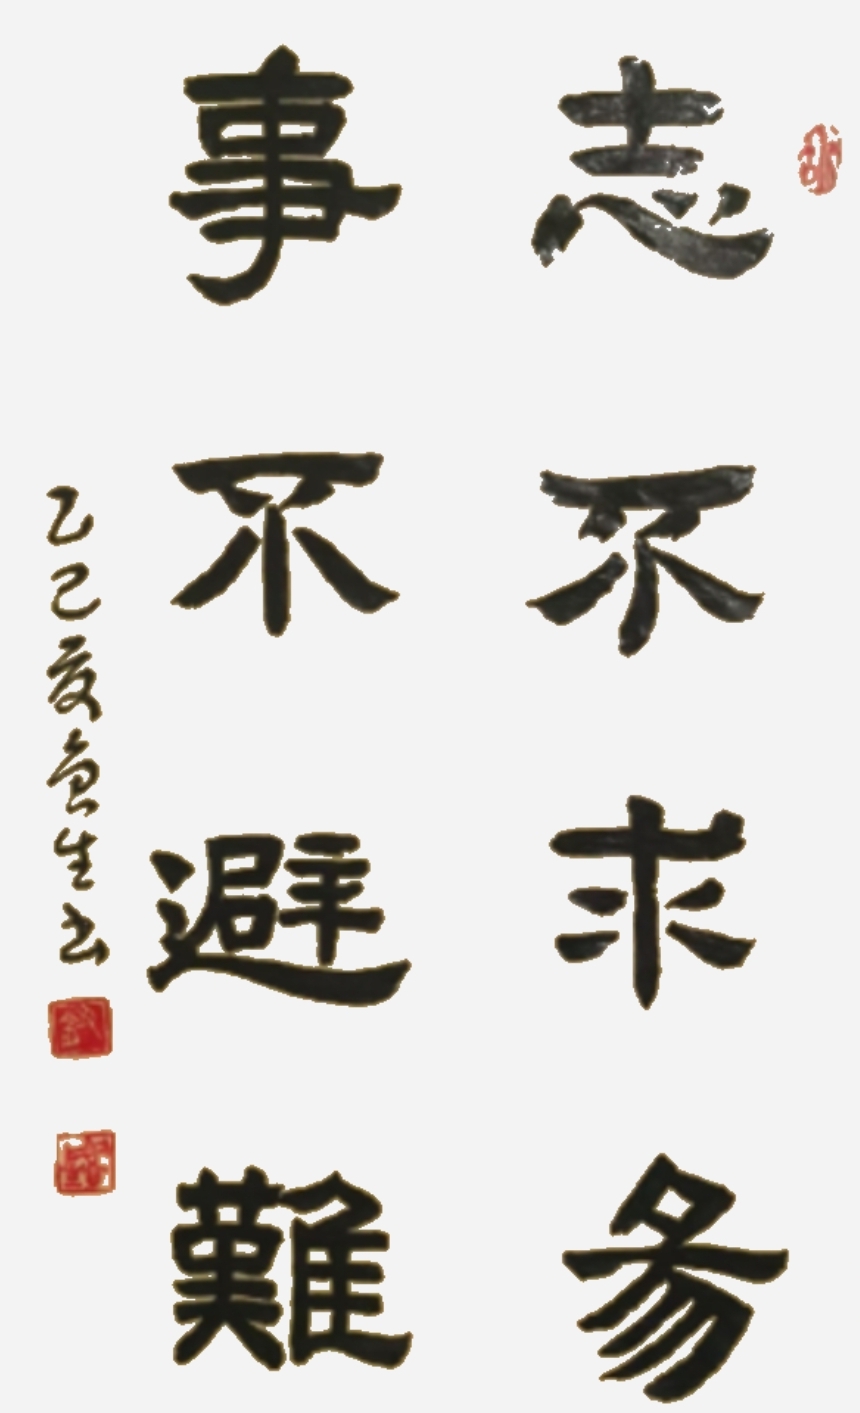 志不求易
事不避難
乙巳夏生书